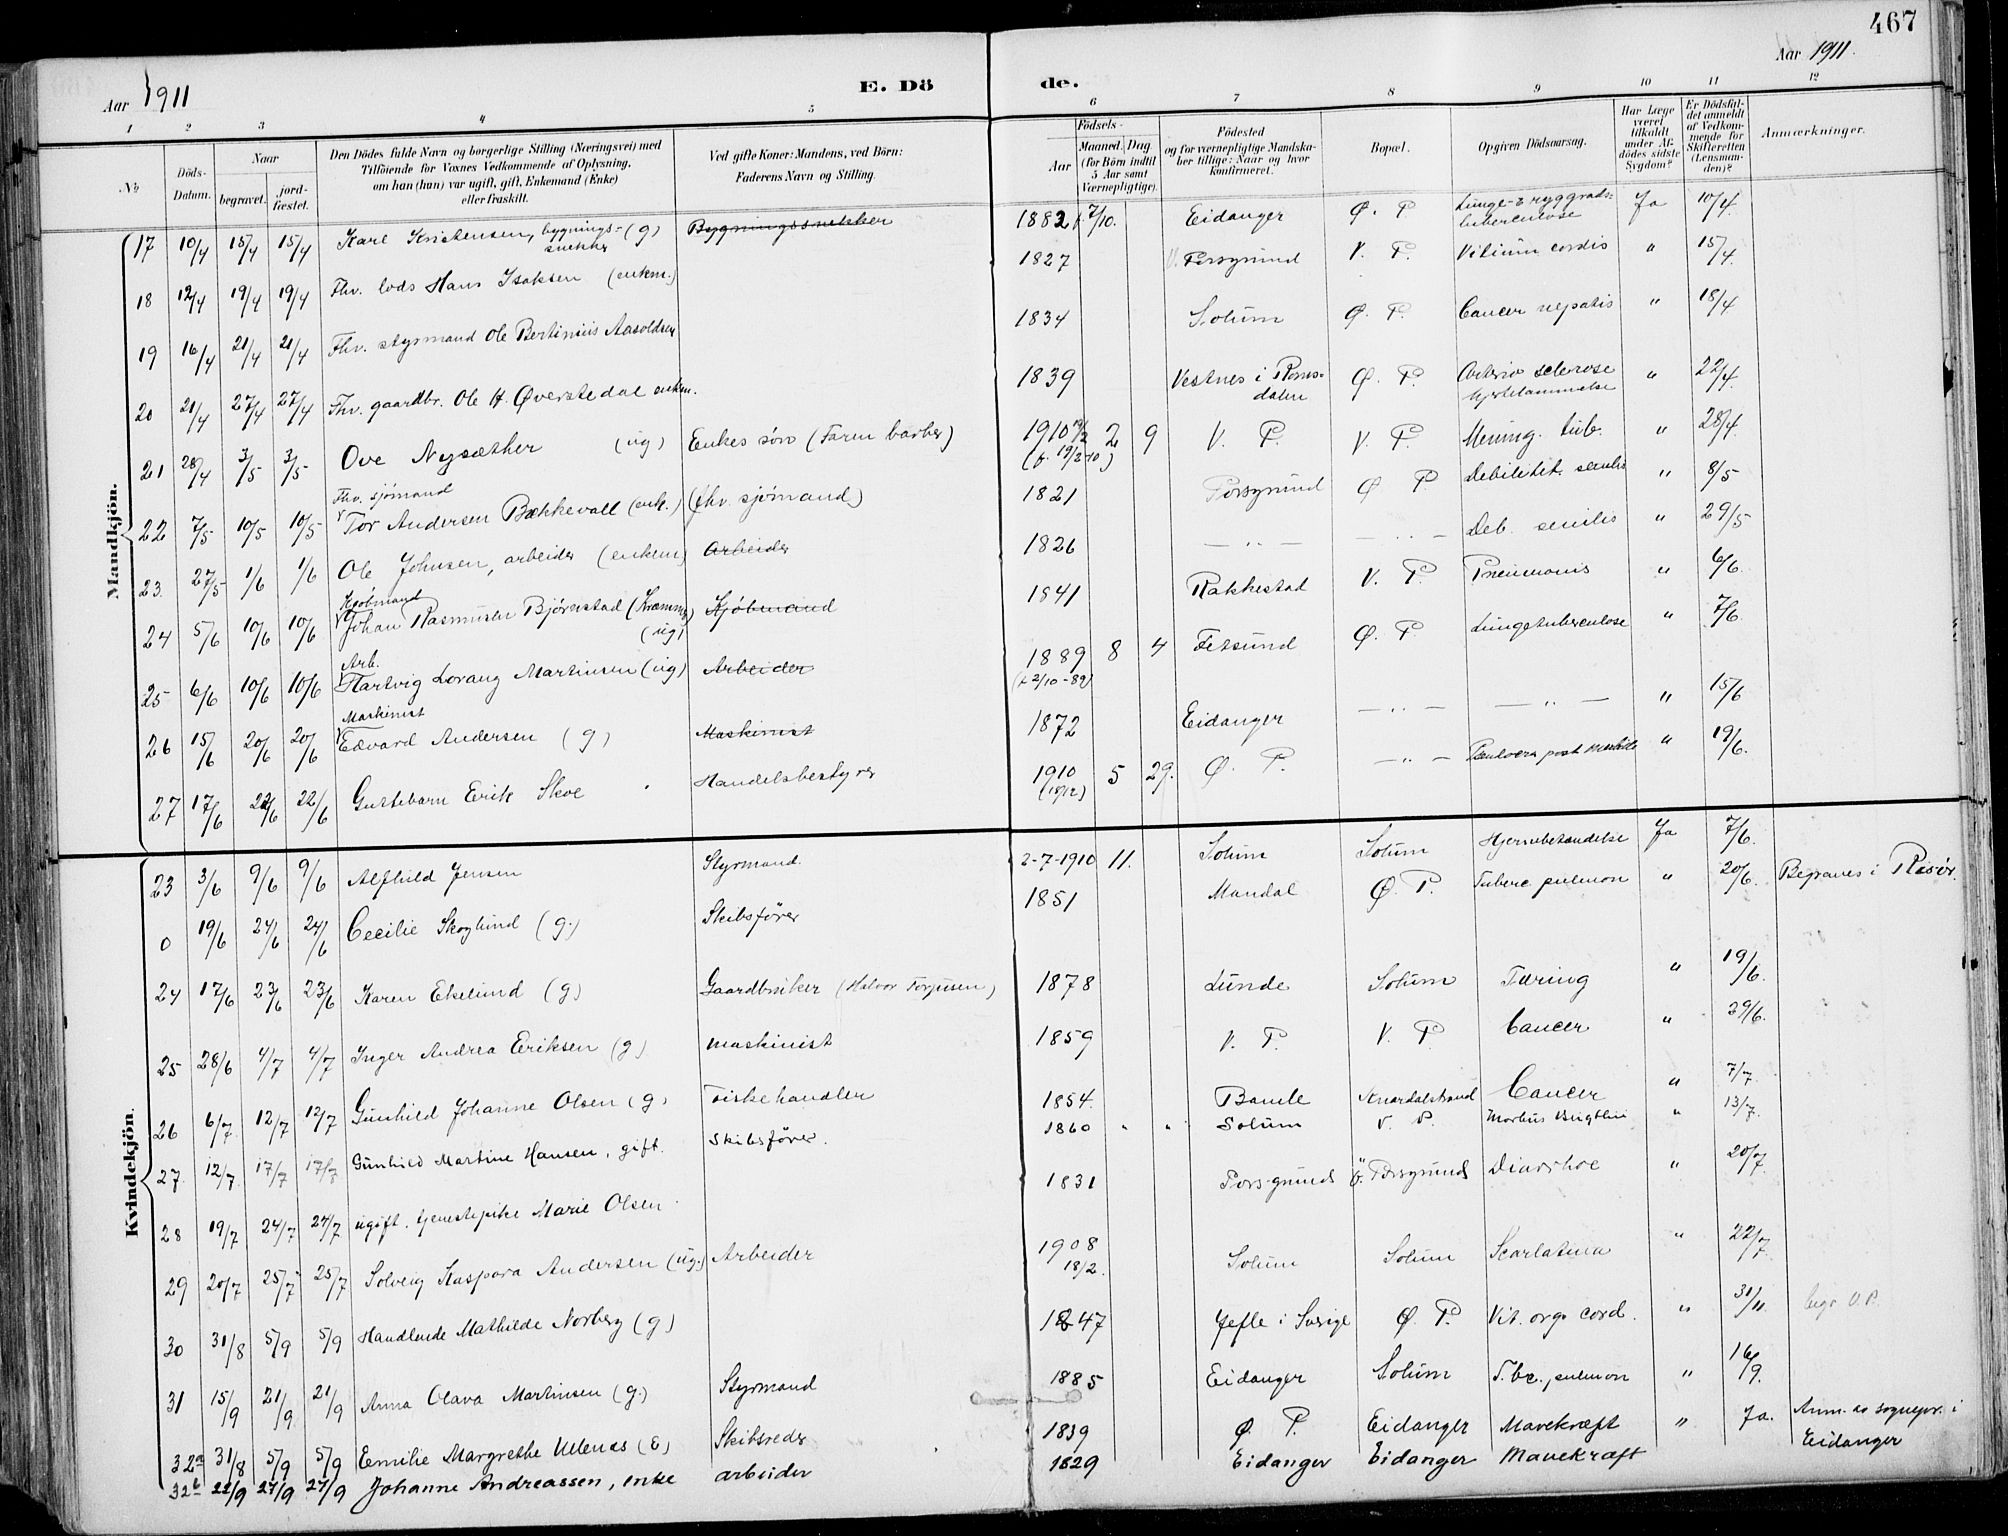 467
Aar 1911
E. Dö de.
Aar 1911.
1 2 3 4 5 6 7 8 9 10 11 12
No
Döds-Datum.
Naar begravet. jordfæstet.
Den Dödes fulde Navn og borgerlige Stilling (Næringsvei) med
Tilföiende for Voxnes Vedkommende af Oplysning,
om han (hun) var ugift, gift, Enkemand (Enke)
eller fraskilt.
Ved gifte Koner: Mandens, ved Börn:
Faderens Navn og Stilling.
Födsels-
Aar Maaned. Dag
(for Börn indtil
5 Aar samt
Værnepligtige).
Födested
og for værnepligtige Mandskaber tillige: Naar og hvor
konfirmeret.
Bopæl.
Opgiven Dödsaarsag.
Har Læge været tilkaldt under Afdödes sidste Sygdom?
Er Dödsfaldet anmeldt af Vedkommende for Skifteretten (Lensmanden)?
Anmærkninger.
Mandkjön.
17 10/4 15/4 15/4 Karl Kristensen, bygnings-snekker (g) Bygningssnekker 1882 f. 7/10. Eidanger Ø. P. Lunge- & ryggrads-tuberculose Ja 10/4.
18 12/4 19/4 19/4 Fhv. lods Hans Isaksen (enkm.) 1827 V. Porsgrund V. P. Vitium cordis " 15/4.
19 16/4 21/4 21/4 Fhv. styrmand Ole Bertinius Aasoldsen 1834 Solum Ø. P. Cancer hepatis " 18/4
20 21/4 27/4 27/4 Fhv. gaardbr. Ole H. Øverstedal enkm. 1839 Vestnes i Romsdalen Ø. P. Arterio sclerose hjertelammelse " 22/4.
21 28/4 3/5 3/5 Ove Nysæther (ug) Enkes søn (Faren barber) 1910 19/2 (f. 19/2 10) 2 9 V. P. V. P. Mening. tub. " 28/4.
22 7/5 10/5 10/5 Fhv. sjømand Tor Andersen Bækkevall (enk.) (fhv. sjømand) 1821 Porsgrund Ø P. Debilitet. senilis " 8/5
23. 27/5 1/6 1/6 Ole Johnsen, arbeider (enkem) Arbeider 1826 — " — — " — Deb. senilis " 29/5
24 5/6 10/6 10/6 Kjøbmand Johan Rasmussen Bjørnstad (Kræmmer) (ug) Kjøbmand 1841 Rakkestad V. P. Pneumonis " 6/6.
25 6/6 10/6 10/6 Arb. Hartvig Lorang Martinsen (ug) Arbeider 1889 (f 2/10-89) 8 4 Fetsund Ø. P. Lungetuberculose " 7/6.
26 15/6 20/6 20/6 Maskinist Edvard Andersen (g) Maskinist 1872 Eidanger — " — — " — " 15/6
27 17/6 22/6 22/6 Guttebarn Erik Skoe Handelsbestyrer 1910 5 29. Ø. P. — " — " 19/6.
Kvindekjön.
23 3/6 9/6 9/6 Alfhild Jensen Styrmand. 2-7-1910 11. Solum Solum Hjernebetændelse Ja 7/6.
0 19/6 24/6 24/6 Cecilie Skoglund (g.) Skibsfører 1851 Mandal Ø. P. Tuberc pulmon " 20/6. Begraves i Risør.
24 17/6 23/6 23/6 Karen Ekelund (g) Gaardbruker (Halvor Torjusen) 1878 Lunde Solum Tæring " 19/6.
25 28/6 4/7 4/7 Inger Andrea Eriksen (g) maskinist 1859 V. P. V. P. Cancer " 29/6.
26 6/7 12/7 12/7 Gunhild Johanne Olsen (g) Fiskehandler 1854. Bamle Knardalstrand Cancer " 7/7.
27. 12/7. 17/7 17/7 Gunhild Martine Hansen, gift. Skibsfører. 1860 " " Solum V. P. Morbus Brigthii " 13/7.
28 19/7 24/7 24/7 ugift. tjenestepike Marie Olsen. 1831 Porsgrund Ö. Porsgrund Diarrhoe " 20/7.
29 20/7 25/7 25/7 Solveig Kaspara Andersen (ug.) Arbeider 1908 18/2. Solum Solum Scarlatina " 22/7.
30 31/8 5/9 5/9 Handlende Mathilde Norberg (g) 1847 Jefle i Sverige Ø. P. Vit. org. cord. " 31/11. begr V.P.
31 15/9 21/9 21/9 Anna Olava Martinsen (g.) Styrmand 1885 Eidanger Solum T.bc. pulmon " 16/9.
32a 31/8 5/9 5/9 Emilie Margrethe (E) Skibsreder 1839 Ø. P. Eidanger Mavekræft " Ja. Anm. av sognepr. i Eidanger
32b 22/9 27/9 27/9 Johanne Andreassen, enke arbeider 1829 Eidanger Eidanger Mavekræft